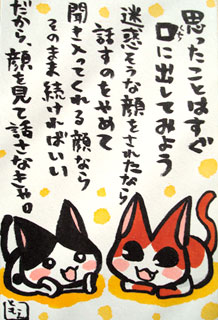 思ったことはすぐ
口に出してみよう
迷惑そうな顔をされたなら
話すのをやめて
聞き入ってくれる顔なら
そのまま続ければいい
だから、顔を見て話さなきゃ。